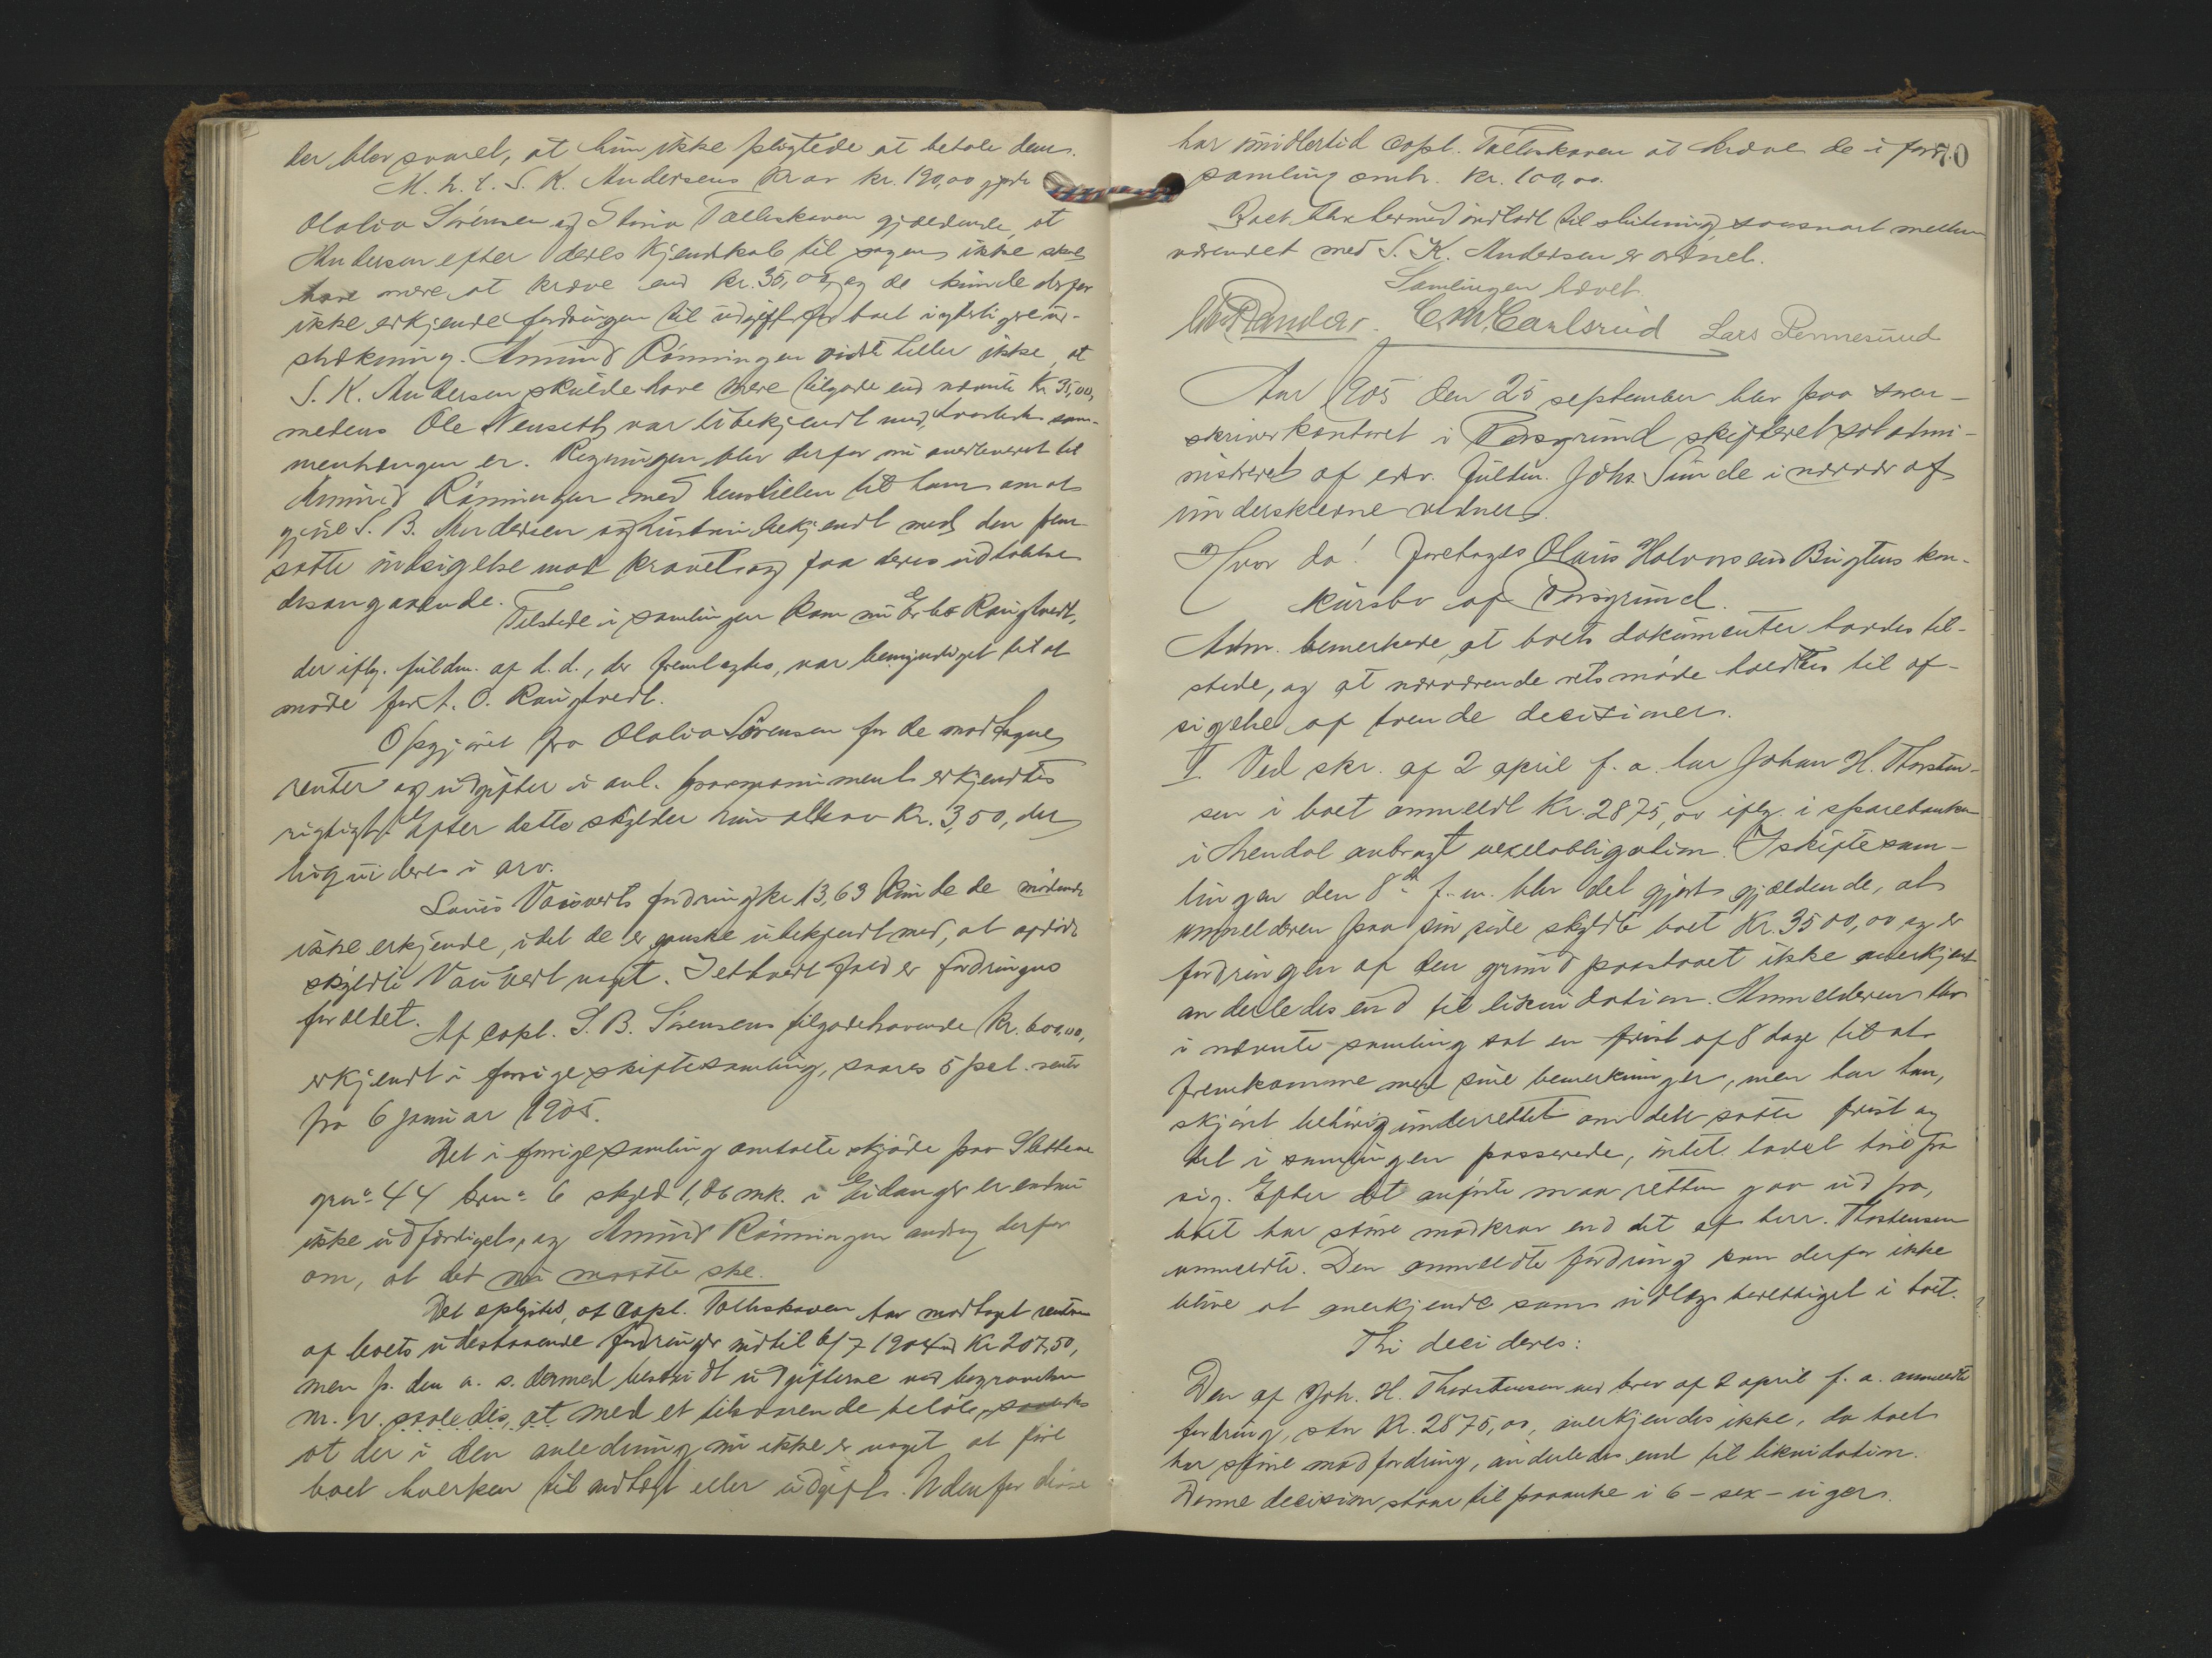 der blev svaret, at hun ikke pligtede at betale dem.
M. h. t. S. K. Andersens krav kr. 190,00 gjorde
Olalia Sörensen og Stina Tællerskaven gjældende, at
Andersen efter deres kjendskab til sagen ikke skal
have mere at kræve end kr. 35,00, og de kunde derfor
ikke erkjende fordringen til udgift for boet i yderligere ud-
strækning. Amund Rönningen vidste heller ikke, at
S. K. Andersen skulde have mere tilgode end nævnte kr. 35,00,
medens Ole Neuseth var ubekjendt med, hvorledes sam-
menhængen er. Regningen blev derfor nu overleveret til
Amund Rönningen med henstillen til ham om at
give S. B. Andersen og hustru bekjendt med den frem-
satte indsigelse mod kravet og faa deres udtalelse
desangaaende.
Tilstede i samlingen kom nu Erbo Raugtvedt,
der iflg. fuldm. af d. d., der fremlagtes, var bemyndiget til at
möde for A. O. Raugtvedt.
Opgjöret fra Olalia Sörensen for de modtagne
renter og udgifter i anl. graamonument erkjendtes
rigtigt. Efter dette skylder hun altsaa kr. 3,50, der
liquideres i arv.
Louis Vauverts fordring kr. 13,63 kunde de mödende
ikke erkjende, idet de er ganske ubekjendt med, at afdöde
skyldte Vauvert noget. I ethvert fald er fordringen
forældet.
Af capt. S. B. Sörensens tilgodehavende kr. 600,00,
erkjendt i forrige skiftesamling, svares 5 pct. rente
fra 6 januar 1905.
Det i forrige samling omtalte skjöde paa Slottene
grno 44 brno 6 skyld 1,06 mk. i Eidanger er endnu
ikke udfærdiget, og Amund Rönningen androg derfor
om, at det nu maatte ske.
Det oplystes, at capt. Tællerskaven har modtaget renterne
af boets udestaaende fordringer indtil 6/7 1904 med kr. 207,50,
men p. den a. s. dermed bestridt udgifterne ved begravelsen
m. v. saaledes, at med et tilsvarende belöb,
at der i den anledning nu ikke er noget at före
boet hverken til indtægt eller udgift. Udenfor disse
har imidlertid capt. Tællerskaven at kræve de i forr. 70
samling omh. kr. 100,00.
Boet blev hermed indladt til slutning saasnart mellem-
værendet med S. K. Andersen er ordnet.
Samlingen hævet.
Chr. Randers. C. M. Carlsrud Lars Rennesund
Aar 1905 den 25 september blev paa soren-
skriverkontoret i Porsgrund skifteret sat admi-
nistreret af edsv. fuldm. Johs. Sunde i nærvær af
underskrevne vidner.
Hvor da! Foretages Olaus Halvorsen Bugtens kon-
kursbo af Porsgrund.
Adm. bemerkede, at boets dokumenter havdes til-
stede, og at nærværende retsmöde holdtes til af-
sigelse af tvende decisioner.
I. Ved skr. af 2 april f. a. har Johan H. Thorsten-
sen i boet anmeldt kr. 2875,00 iflg. i sparebanken
i Arendal anbragt vexelobligation. I skiftesam-
lingen den 8de f. m. blev det gjort gjældende, at
anmelderen paa sin side skyldte boet kr. 3500,00 og er
fordringen af den grund paastaaet ikke anerkjent
anderledes end til likvidation. Anmelderen har
i nævnte samling sat en frist af 8 dage til at
fremkomme med sine bemerkninger, men har han,
skjönt behörig underrettet om den satte frist og
det i samlingen passerede, intet ladet höre fra
sig. Efter det anförte maa retten gaa ud fra,
boet har större modkrav end det af herr. Thorstensen
anmeldte. Den anmeldte fordring kan derfor ikke
blive at anerkjende som udlægsberettiget i boet.
Thi decideres:
Den af Joh. H. Thorstensen ved brev af 2 april f. a. anmeldte
fordring, stor kr. 2875,00, anerkjendes ikke, da boet
har större modfordring, anderledes end til likvidation.
Denne decision staar til paaanke i 6 – sex – uger.